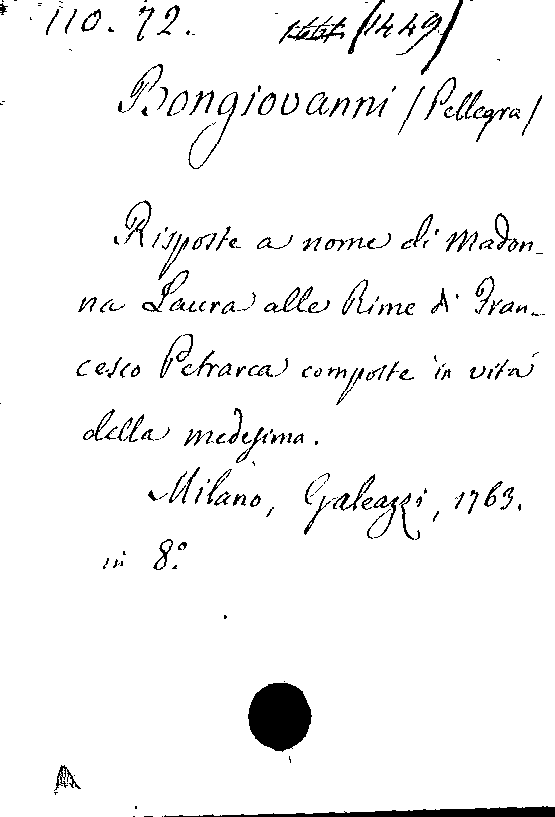 110. 72. /1449/
Bongiovanni /Pellegra/
Risposte a nome di Madon-
na Laura alle Rime di Fran-
cesco Petrarca composte in vita
della medesima.
Milano, Galeazzi, 1763.
in 8.º